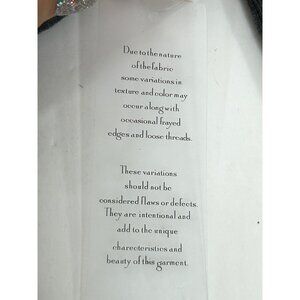 Due to the nature
of the fabric
some variations in
texture and color may
occur along with
occasional frayed
edges and loose threads.
These variations
should not be
considered flaws or defects.
They are intentional and
add to the unique
charecteristics and
beauty of this garment.